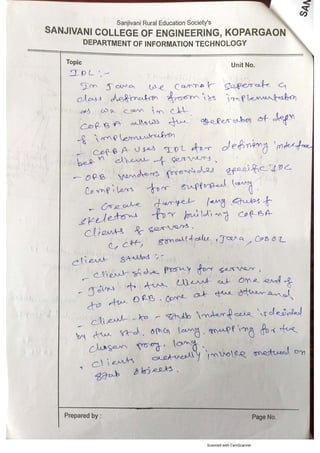 Sanjivani Rural Education Society's
SANJIVANI COLLEGE OF ENGINEERING, KOPARGAON
DEPARTMENT OF INFORMATION TECHNOLOGY
SAN
Topic
Unit No.
IDL :-
In Java we cannot seperate a
class defination from its implementation
as we can in C++
CORBA allows the seperation of defn
& implementation
- CORBA uses IDL for defining interface
betn client & servers.
- ORB vendors provides specific IDL
Compilers for supported lang.
- Create target lang stubs &
skeletons for building CORBA
Clients & servers.
C, C++, smalltalk, Java, COBOL
client stubs :-
- Client side proxy for server.
- Joins to the client at one end &
to the ORB core at the other end.
- client-to-stub interface is decided
by the std. OMG lang. mapping for the
chosen prog. lang.
- Clients actually invokes method on
stub objects.
Prepared by :
Page No.
Scanned with CamScanner